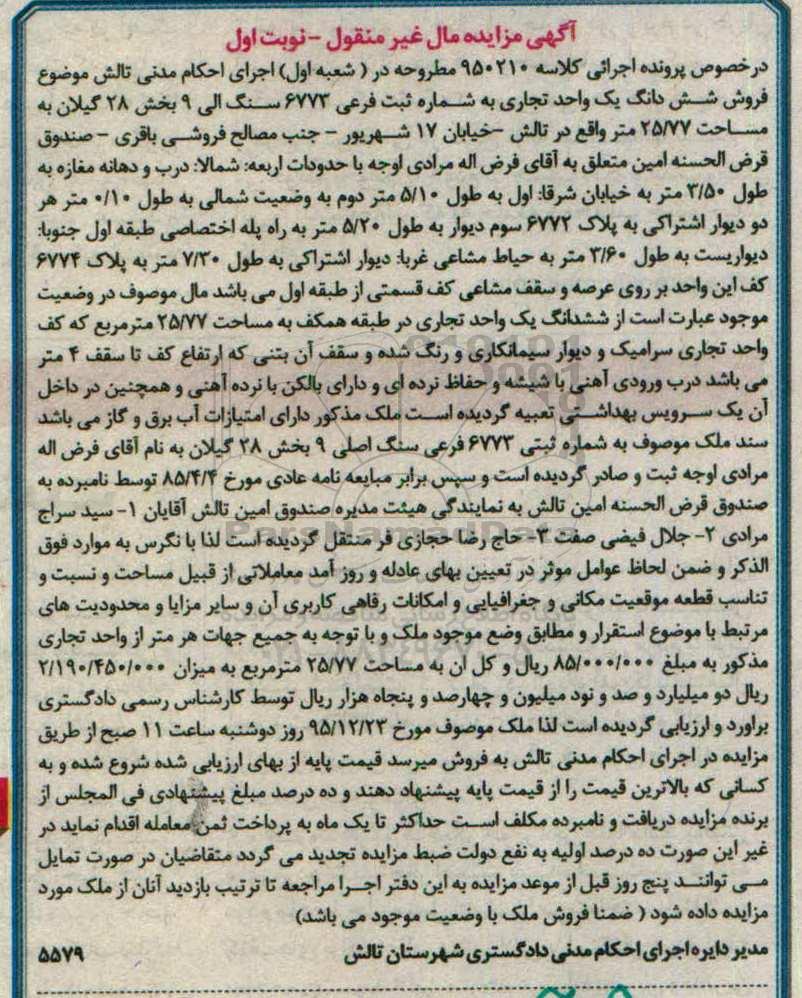 آگهی مزایده مال غیر منقول -نوبت اول
درخصوص پرونده اجرائی کلاسه ۹۵۰۲۱۰ مطروحه در ( شعبه اول) اجرای احکام مدنی تالش موضوع
فروش شش دانگ یک واحد تجاری به شماره ثبت فرعی ۶۷۷۳ سنگ الی ۹ بخش ۲۸ گیلان به
مساحت ۲۵/۷۷ متر واقع در تالش -خیابان ۱۷ شهریور - جنب مصالح فروشی باقری - صندوق
قرض الحسنه امین متعلق به آقای فرض اله مرادی اوجه با حدودات اربعه: شمالا: درب و دهانه مغازه به
طول ۳/۵۰ متر به خیابان شرقا: اول به طول ۵/۱۰ متر دوم به وضعیت شمالی به طول ۰/۱۰ متر هر
دو دیوار اشتراکی به پلاک ۶۷۷۲ سوم دیوار به طول ۵/۲۰ متر به راه پله اختصاصی طبقه اول جنوبا:
دیواریست به طول ۳/۶۰ متر به حیاط مشاعی غربا: دیوار اشتراکی به طول ۷/۳۰ متر به پلاک ۶۷۷۴
کف این واحد بر روی عرصه و سقف مشاعی کف قسمتی از طبقه اول می باشد مال موصوف در وضعیت
موجود عبارت است از ششدانگ یک واحد تجاری در طبقه همکف به مساحت ۲۵/۷۷ مترمربع که کف
واحد تجاری سرامیک و دیوار سیمانکاری و رنگ شده و سقف آن بتنی که ارتفاع کف تا سقف ۴ متر
می باشد درب ورودی آهنی با شیشه و حفاظ نرده ای و دارای بالکن با نرده آهنی و همچنین در داخل
آن یک سرویس بهداشتی تعبیه گردیده است ملک مذکور دارای امتیازات آب برق و گاز می باشد
سند ملک موصوف به شماره ثبتی ۶۷۷۳ فرعی سنگ اصلی ۹ بخش ۲۸ گیلان به نام آقای فرض اله
مرادی اوجه ثبت و صادر گردیده است و سپس برابر مبایعه نامه عادی مورخ ۸۵/۴/۴ توسط نامبرده به
صندوق قرض الحسنه امین تالش به نمایندگی هیئت مدیره صندوق امین تالش آقایان ۱- سید سراج
مرادی ۲- جلال فیضی صفت ۳- حاج رضا حجازی فر منتقل گردیده است لذا با نگرس به موارد فوق
الذکر و ضمن لحاظ عوامل موثر در تعیین بهای عادله و روز آمد معاملاتی از قبیل مساحت و نسبت و
تناسب قطعه موقعیت مکانی و جغرافیایی و امکانات رفاهی کاربری آن و سایر مزایا و محدودیت های
مرتبط با موضوع استقرار و مطابق وضع موجود ملک و با توجه به جمیع جهات هر متر از واحد تجاری
مذکور به مبلغ ۸۵/۰۰۰/۰۰۰ ریال و کل ان به مساحت ۲۵/۷۷ مترمربع به میزان ۲/۱۹۰/۴۵۰/۰۰۰
ریال دو میلیارد و صد و نود میلیون و چهارصد و پنجاه هزار ریال توسط کارشناس رسمی دادگستری
براورد و ارزیابی گردیده است لذا ملک موصوف مورخ ۹۵/۱۲/۲۳ روز دوشنبه ساعت ۱۱ صبح از طریق
مزایده در اجرای احکام مدنی تالش به فروش میرسد قیمت پایه از بهای ارزیابی شده شروع شده و به
کسانی که بالاترین قیمت را از قیمت پایه پیشنهاد دهند و ده درصد مبلغ پیشنهادی فی المجلس از
برنده مزایده دریافت و نامبرده مکلف است حداکثر تا یک ماه به پرداخت ثمن معامله اقدام نماید در
غیر این صورت ده درصد اولیه به نفع دولت ضبط مزایده تجدید می گردد متقاضیان در صورت تمایل
می توانند پنج روز قبل از موعد مزایده به این دفتر اجرا مراجعه تا ترتیب بازدید آنان از ملک مورد
مزایده داده شود ( ضمنا فروش ملک با وضعیت موجود می باشد)
مدیر دایره اجرای احکام مدنی دادگستری شهرستان تالش ۵۵۷۹